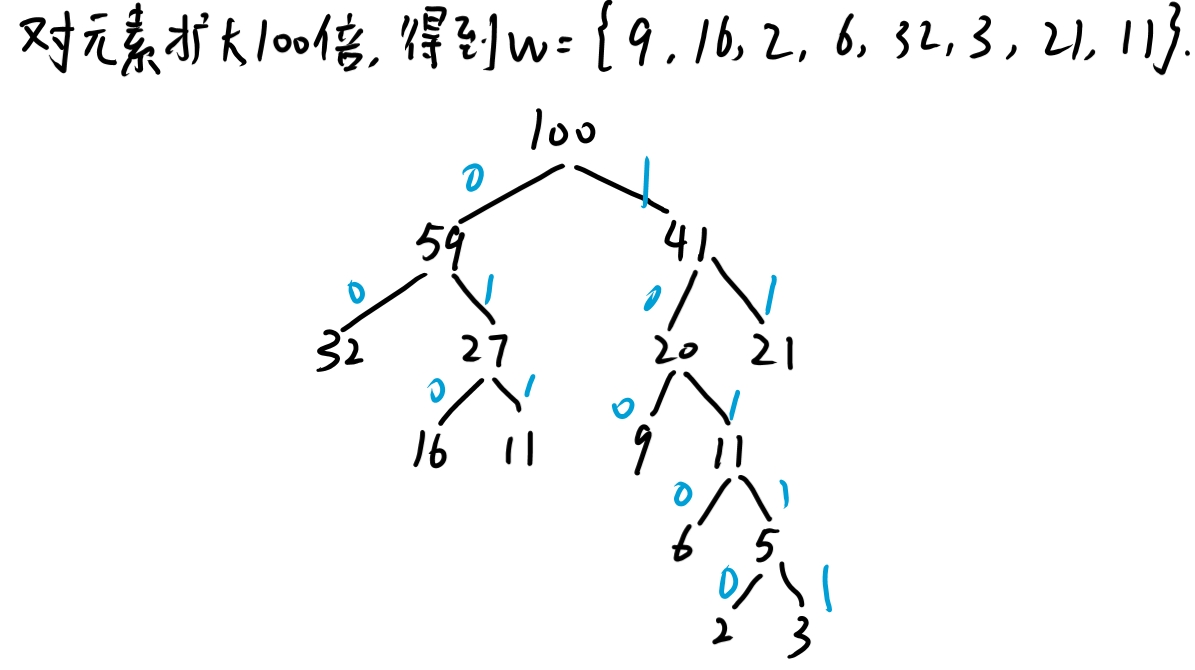 对元素扩大100倍, 得到w={9, 16, 2, 6, 32, 3, 21, 11}.
100
0 1
59 41
0 1 0 1
32 27 20 21
0 1 0 1
16 11 9 11
0 1
6 5
0 1
2 3